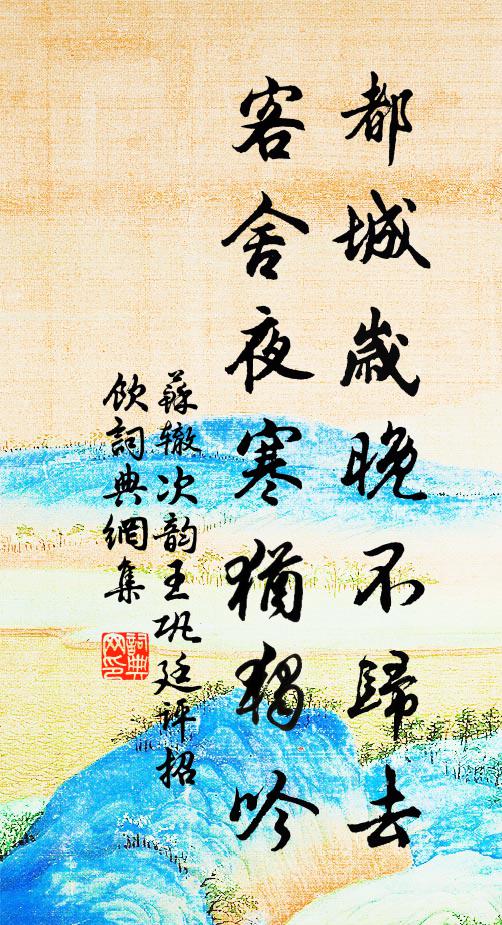 都城歲晚不歸去
客舍夜寒猶獨吟
蘇轍次韵王巩廷评招
飲詞典網集
詞典
网印